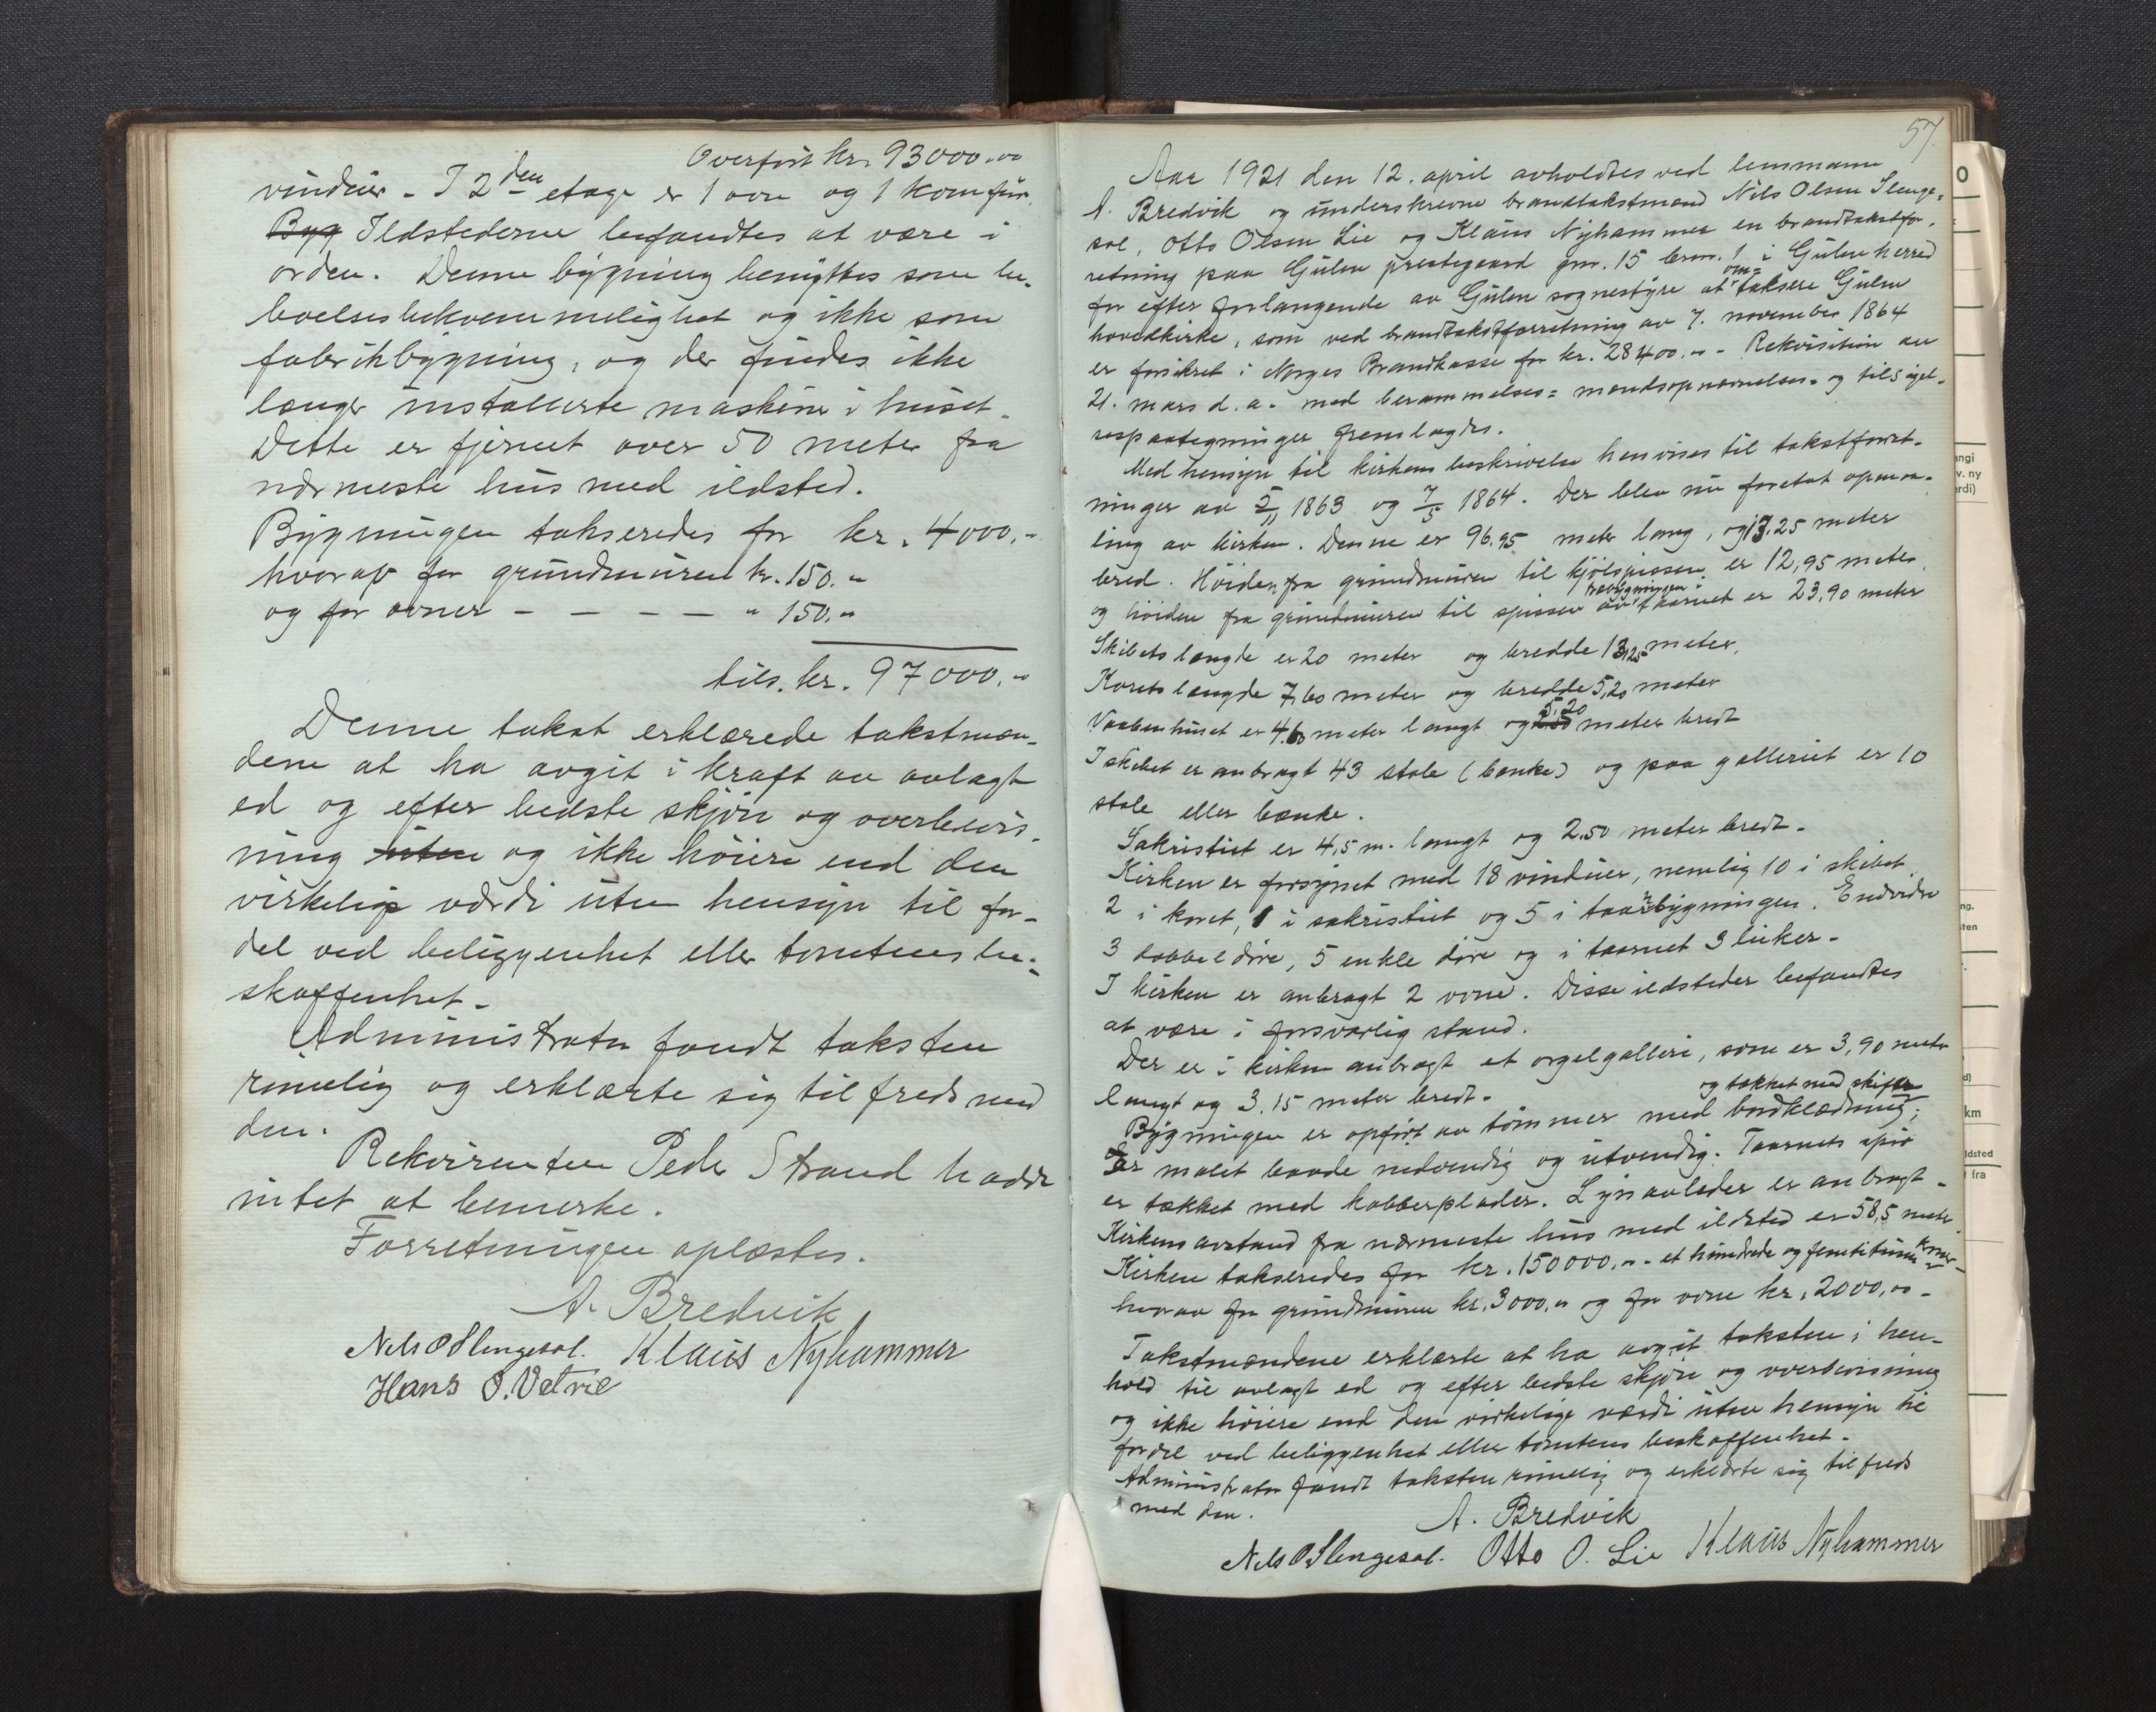 Overført kr. 93000.00
vinduer. I 2den etage er 1 ovn og 1 komfur.
Byg Ildstederne befandtes at være i
orden. Denne bygning benyttes som be-
boelsesbekvemmelighet og ikke som
fabrikbygning, og der findes ikke
længer installerte maskiner i huset.
Dette er fjernet over 50 meter fra
nærmeste hus med ildsted.
Bygningen takseredes for kr. 4000.-
hvorav for grundmuren kr. 150.-
og for ovner - - - - " 150.-
tils. kr. 97000.-
Denne takst erklærede takstmæn-
dene at ha avgit i kraft av avlagt
ed og efter bedste skjøn og overbevis-
ning uten og ikke høiere end den
virkelige værdi uten hensyn til for-
del ved beliggenhet eller tomtens be-
skaffenhet.
Administrator fandt taksten
rimelig og erklærte sig tilfreds med
den.
Rekvirenten Peder Strand hadde
intet at bemerke.
Forretningen oplæstes.
A. Bredvik
Nils O Slengesol. Klaus Nyhammer
Hans O. Vetvik
57.
Aar 1921 den 12. april avholdtes ved lensmann
A. Bredvik og underskrevne brandtakstmænd Nils Olsen Slenge-
sol, Otto Olsen Lie og Klaus Nyhammer en brandtakstfor-
retning paa Gulen prestegaard gnr. 15 brnr. 1 i Gulen herred
for efter forlangende av Gulen sognestyre at omtaksere Gulen
hovedkirke, som ved brandtakstforretning av 7. november 1864
er forsikret i Norges Brandkasse for kr. 28400.-. Rekvisition av
21. mars d.a. med berammelses- mændsopnævnelses- og tilsigel-
sespaategninger fremlagdes.
Med hensyn til kirkens beskrivelse henvises til takstforret-
ninger av 5/11 1863 og 7/5 1864. Der blev nu foretat opmaa-
ling av kirken. Denne er 96.95 meter lang, og 13.25 meter
bred. Høiden fra grundmuren til kjølspissen er 12,95 meter,
og høiden fra grundmuren til spissen av træbygningen i taarnet er 23,90 meter
Skibets længde er 20 meter og bredde 13,25 meter.
Korets længde 7,60 meter og bredde 5,20 meter
Vaabenhuset er 4.60 meter langt og 5,20 meter bredt
I skibet er anbragt 43 stole (bænke) og paa galleriet er 10
stole eller bænke.
Sakristiet er 4,5 m. langt og 2.50 meter bredt.
Kirken er forsynet med 18 vinduer, nemlig 10 i skibet,
2 i koret, 1 i sakristiet og 5 i taarnbygningen. Endvidere
3 dobbeldøre, 5 enkle døre og i taarnet 3 luker.
I kirken er anbragt 2 ovne. Disse ildsteder befandtes
at være i forsvarlig stand.
Der er i kirken anbragt et orgelgalleri, som er 3,90 meter
langt og 3.15 meter bredt.
Bygningen er opført av tømmer med bordklædning, og tækket med skifer
er malet baade indvendig og utvendig. Taarnets spir
er tækket med kobberplader. Lynavleder er anbragt.
Kirkens avstand fra nærmeste hus med ildsted er 58,5 meter.
Kirken takseredes for kr. 150000.-. et hundrede og femtitusen kroner-
hvorav for grundmuren kr. 3000.- og for ovne kr. 2000,00.
Takstmændene erklærte at ha avgit taksten i hen-
hold til avlagt ed og efter bedste skjøn og overbevisning
og ikke høiere end den virkelige værdi uten hensyn til
fordel ved beliggenhet eller tomtens beskaffenhet.
Administrator fandt taksten rimelig og erklærte sig tilfreds
med den.
A. Bredvik
Nils O Slengesol. Otto O. Lie Klaus Nyhammer